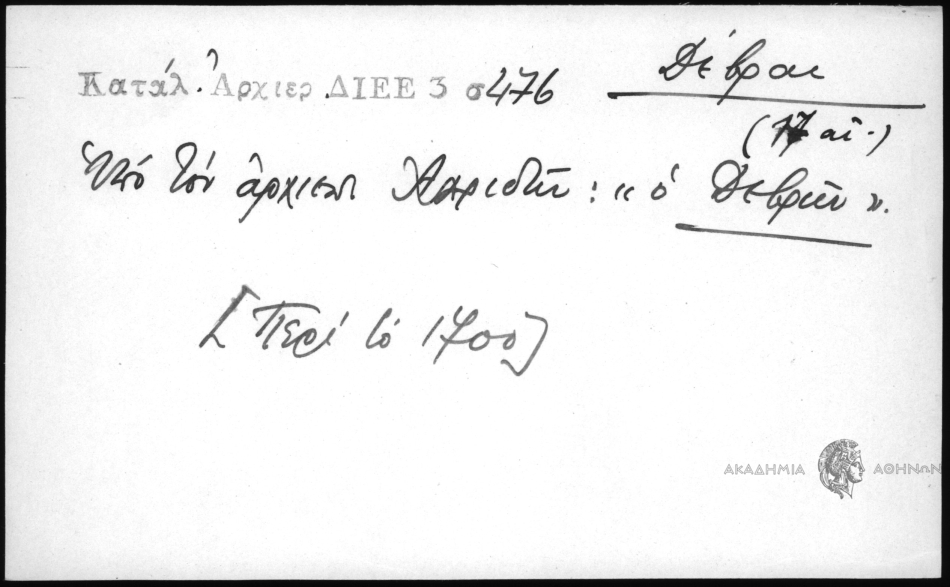 Κατάλ. Ἀρχιερ. ΔΙΕΕ 3 σ 476
Δέβραι
(17 αἰ.)
Ὑπό τόν ἀρχιεπ : «ὁ Δεβρῶν».
[Περί τό 1700]
ΑΚΑΔΗΜΙΑ ΑΘΗΝΩΝ